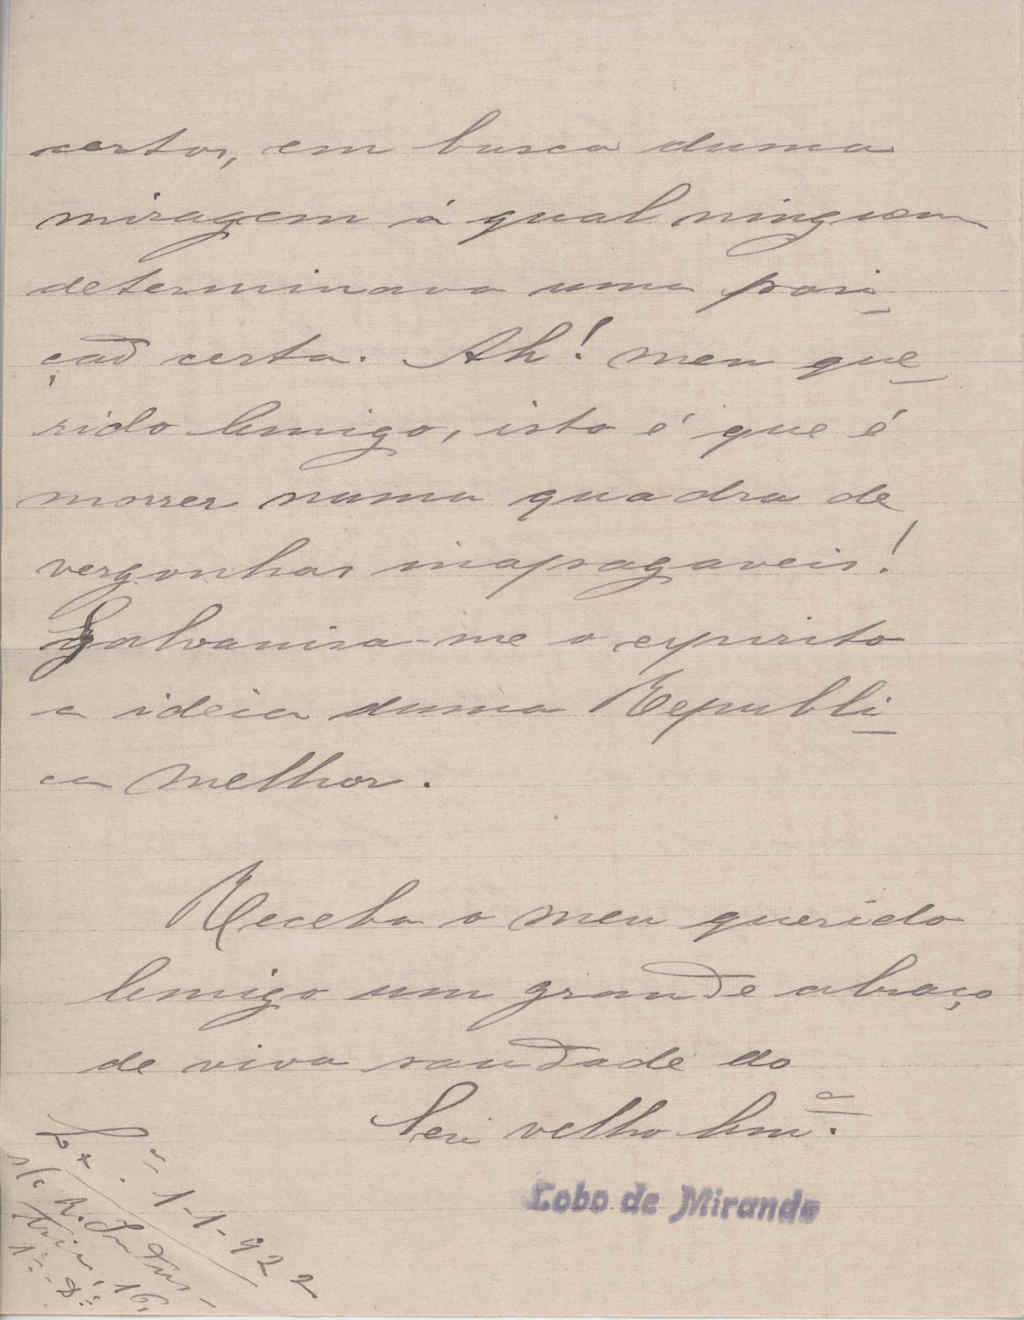 certos, em busca duma
miragem á qual ninguem
determinava uma posi-
ção certa. Ah! meu que-
rido Amigo, isto é que é
morrer numa quadra de
vergonhas inapagaveis!
Galvanisa-me o espirito
a ideia duma Republi-
ca melhor.
Receba o meu querido
Amigo um grande abraço
de viva saudade do
Seu velho Am.º
Lobo de Miranda
Lx.ª 1-1-922
s/c R. Indus-
tria, 16,
1º.-D.º